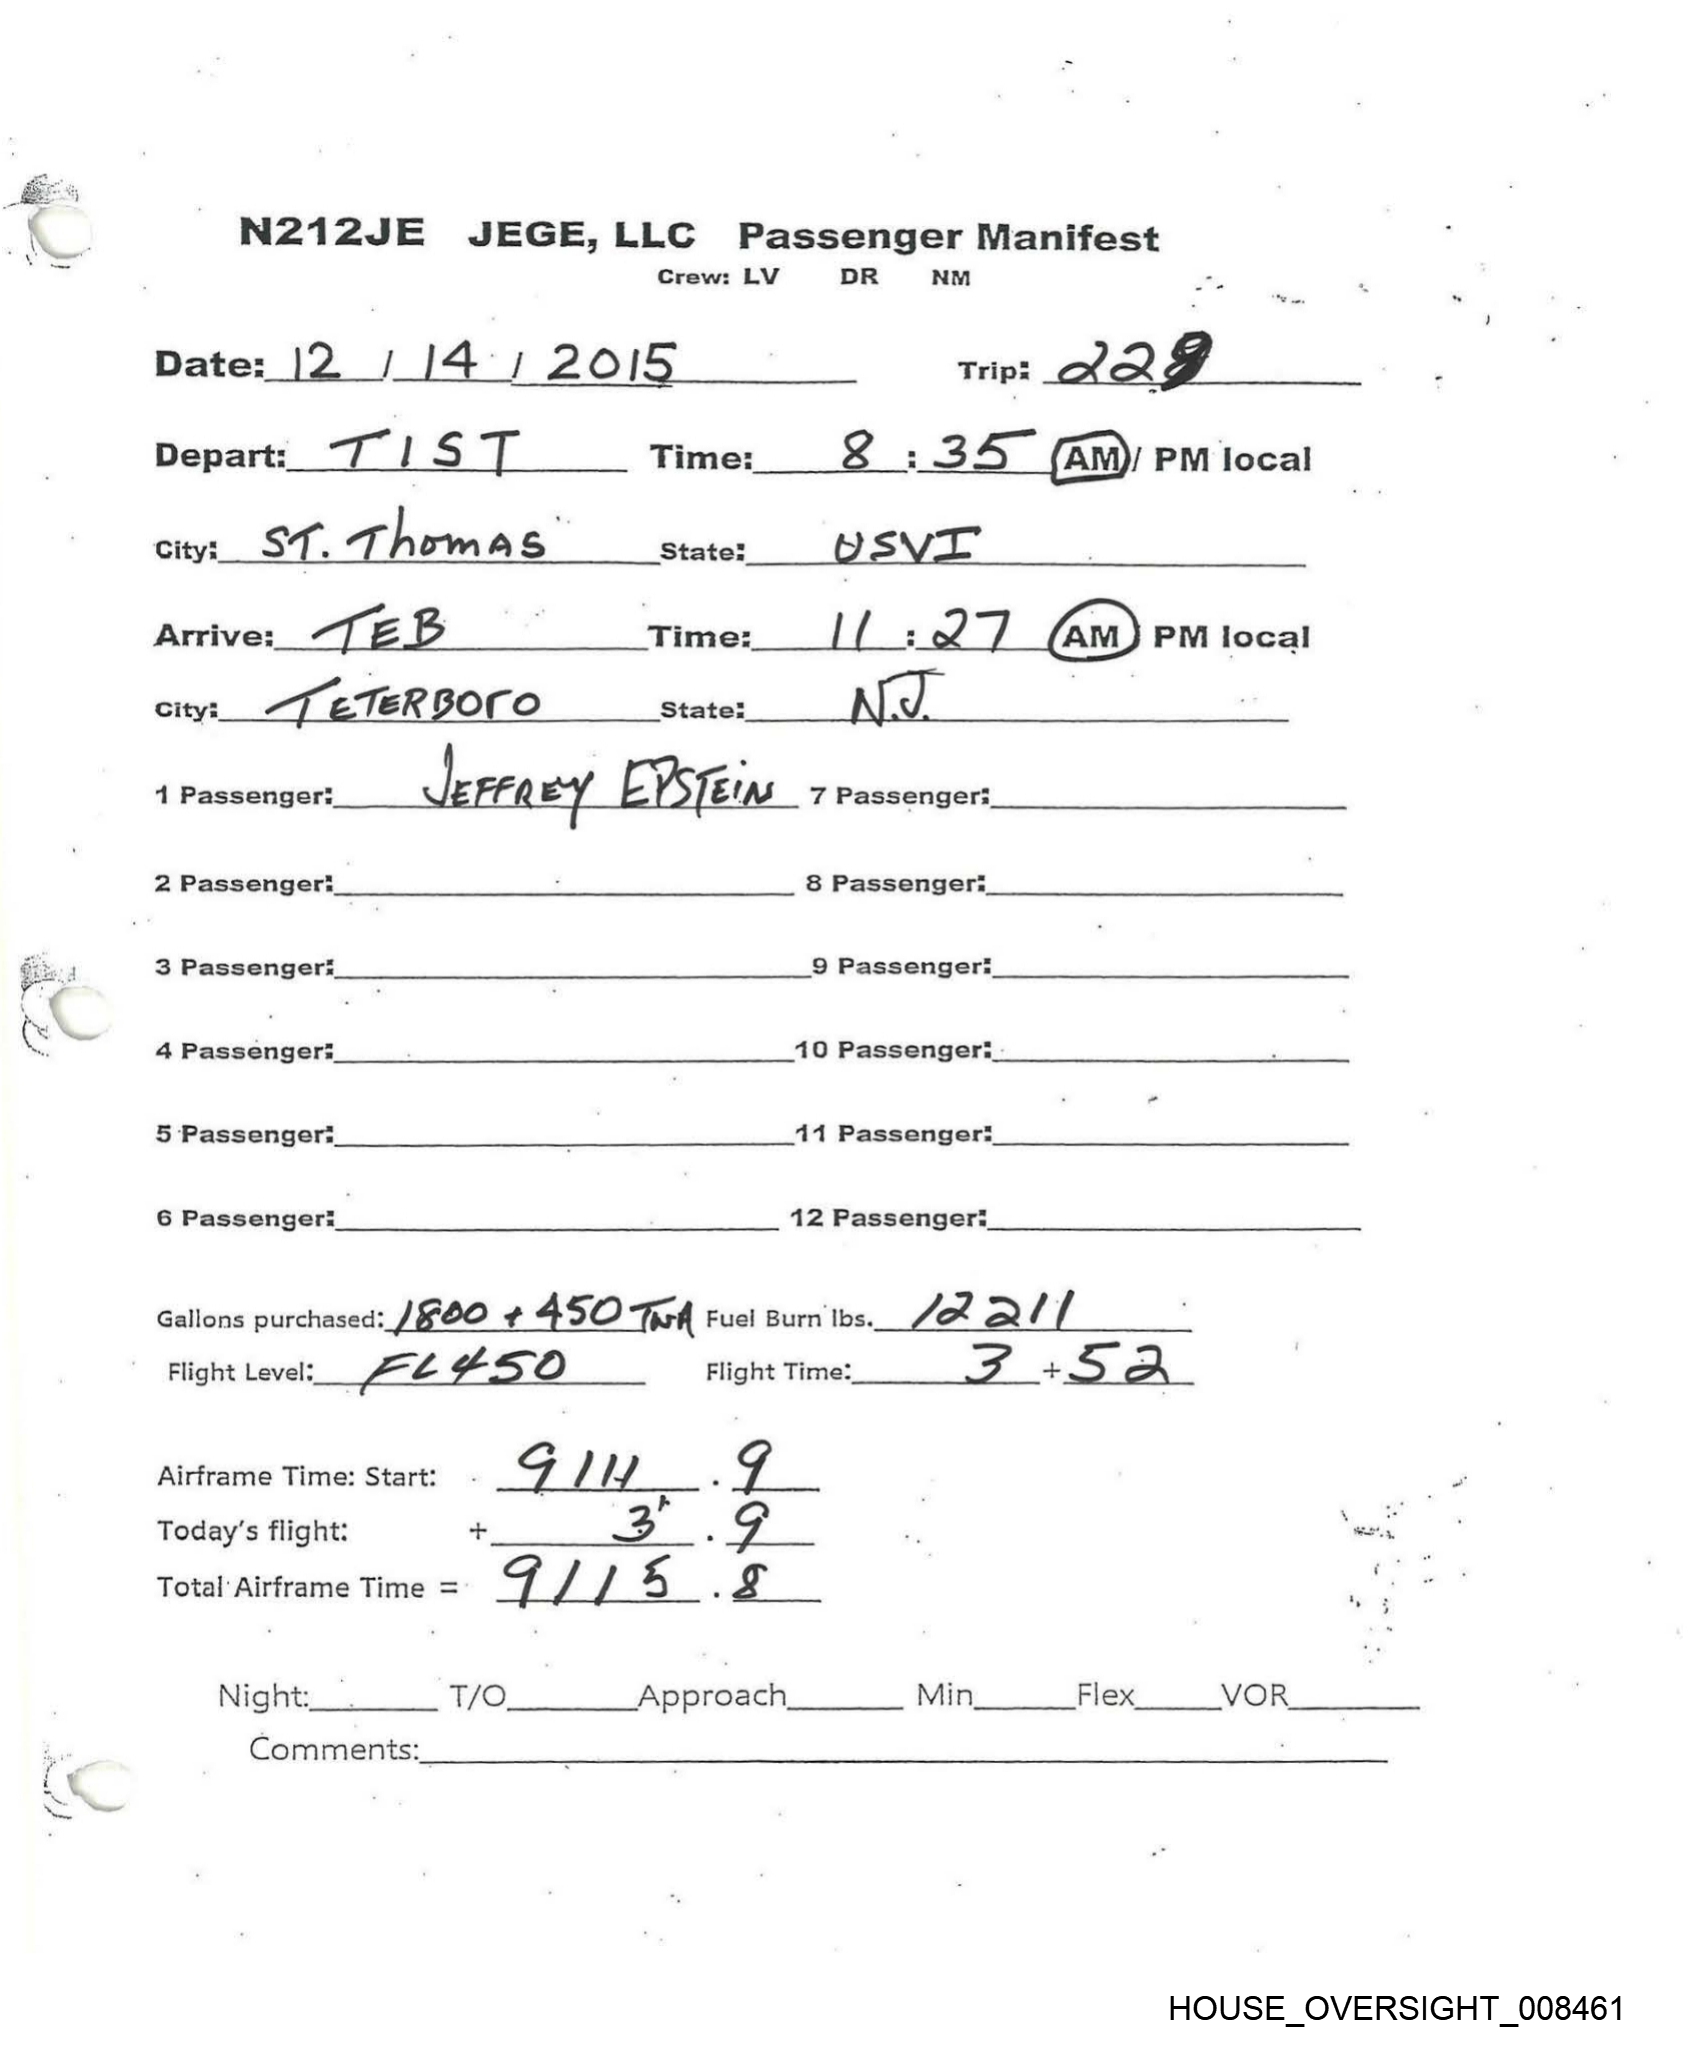 N212JE JEGE, LLC Passenger Manifest
Crew: LV DR NM
Date: 12 / 14 / 2015 Trip: 229
Depart: TIST Time: 8 : 35 AM / PM local
City: ST. Thomas State: USVI
Arrive: TEB Time: 11 : 27 AM PM local
City: TETERBORO State: N.J.
1 Passenger: JEFFREY EPSTEIN 7 Passenger:
2 Passenger: 8 Passenger:
3 Passenger: 9 Passenger:
4 Passenger: 10 Passenger:
5 Passenger: 11 Passenger:
6 Passenger: 12 Passenger:
Gallons purchased: 1800 + 450 Fuel Burn lbs. 12211
Flight Level: FL450 Flight Time: 3 + 52
Airframe Time: Start: 9111 . 9
Today's flight: + 3 . 9
Total Airframe Time = 9115 . 8
Night: T/O Approach Min Flex VOR
Comments:
HOUSE_OVERSIGHT_008461